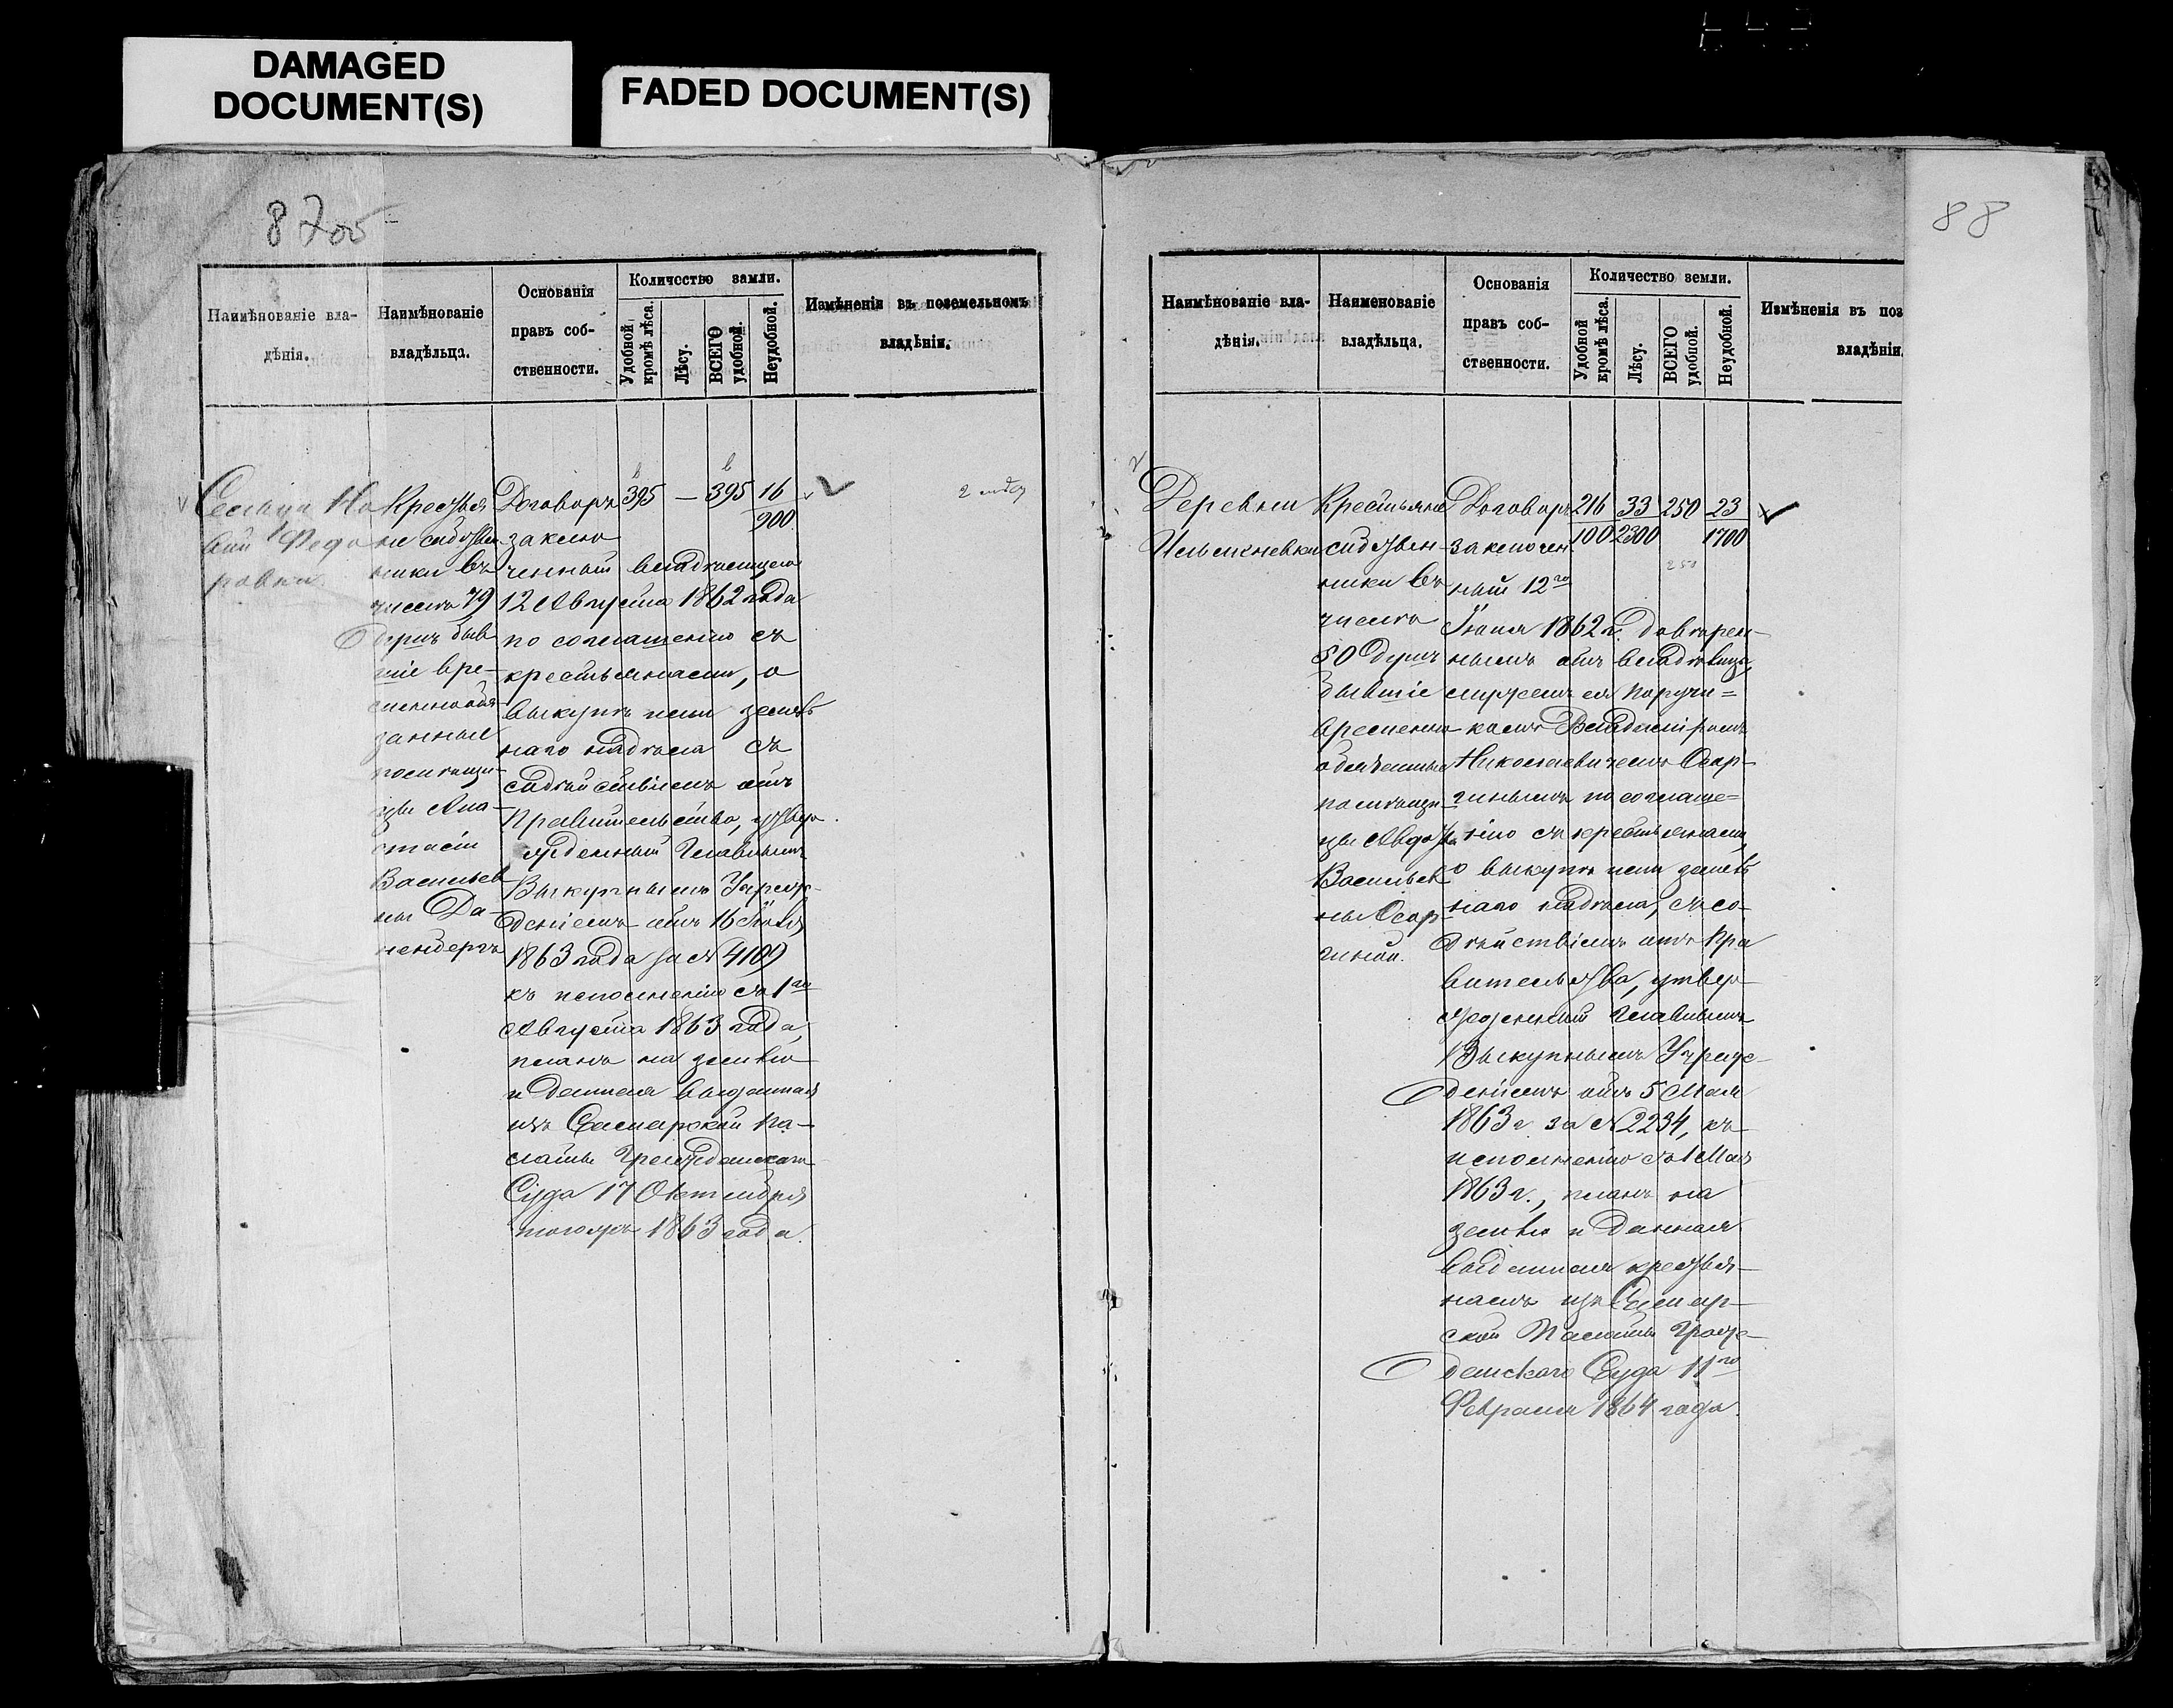 DAMAGED
DOCUMENT(S)
FADED DOCUMENT(S)
87 об
Наимѣнованіе вла-
дѣнія.
Наимѣнованіе
владѣльца.
Основанія
правъ соб-
ственности.
Количество земли.
Удобной
кромѣ лѣса.
Лѣсу.
ВСЕГО
удобной.
Неудобной.
Измѣненія въ поземельномъ
владѣніи.
Сельца Но
вой Федо
ровки
Крестья
не собствен
ники въ
числѣ 79
душъ быв
шіе вре-
меннообя
занные
помѣщи-
цы Ана-
стасіи
Васильев
ны Да-
нендергъ
395 — 395 16
900
Договоръ
заклю
ченный владѣлицею
12 Августа 1862 года
по соглашенію съ
крестьянами, о
выкупѣ ими земель
наго надѣла съ
содѣйствіемъ отъ
Правительства, утвер
жденный Главнымъ
Выкупнымъ Учреж-
деніемъ отъ 16 Іюля
1863 года за № 4109
къ исполненію съ 1го
Августа 1863 года,
планъ на землю
и данная выданная
изъ Самарской Па-
латы Гражданскаго
Суда 17 Октября
тогожъ 1863 года.
88
Наимѣнованіе вла-
дѣнія.
Наименованіе
владѣльца.
Основанія
правъ соб-
ственности.
Количество земли.
Удобной
кромѣ лѣса.
Лѣсу.
ВСЕГО
удобной.
Неудобной.
Измѣненія въ поз
владѣніи.
Деревни
Крестьяне
собствен
ники въ
числѣ
50 душъ
бывшіе
временно
обязанные
помѣщи
цы Авдотьи
Васильев
ны Осор-
гиной.
216 33 250 23
100 2300 1700
250
Договоръ
заключен
ный 12го
Іюня 1862 г. довѣрен-
нымъ отъ владѣлицы,
мужемъ ея Поручи=
комъ Владиміромъ
Николаевичемъ Осор-
гинымъ по соглаше=
нію съ крестьянами,
о выкупѣ ими земель
наго надѣла, съ со-
дѣйствіемъ отъ Пра
вительства, утвер-
жденный Главнымъ
Выкупнымъ Учреж-
деніемъ отъ 5 Мая
1863 г. за № 2234, къ
исполненію съ 1 Мая
1863 г., планъ на
землю и данная
выданная крестья-
намъ изъ Самар-
ской Палаты Граж-
данскаго Суда 11го
Февраля 1864 года.